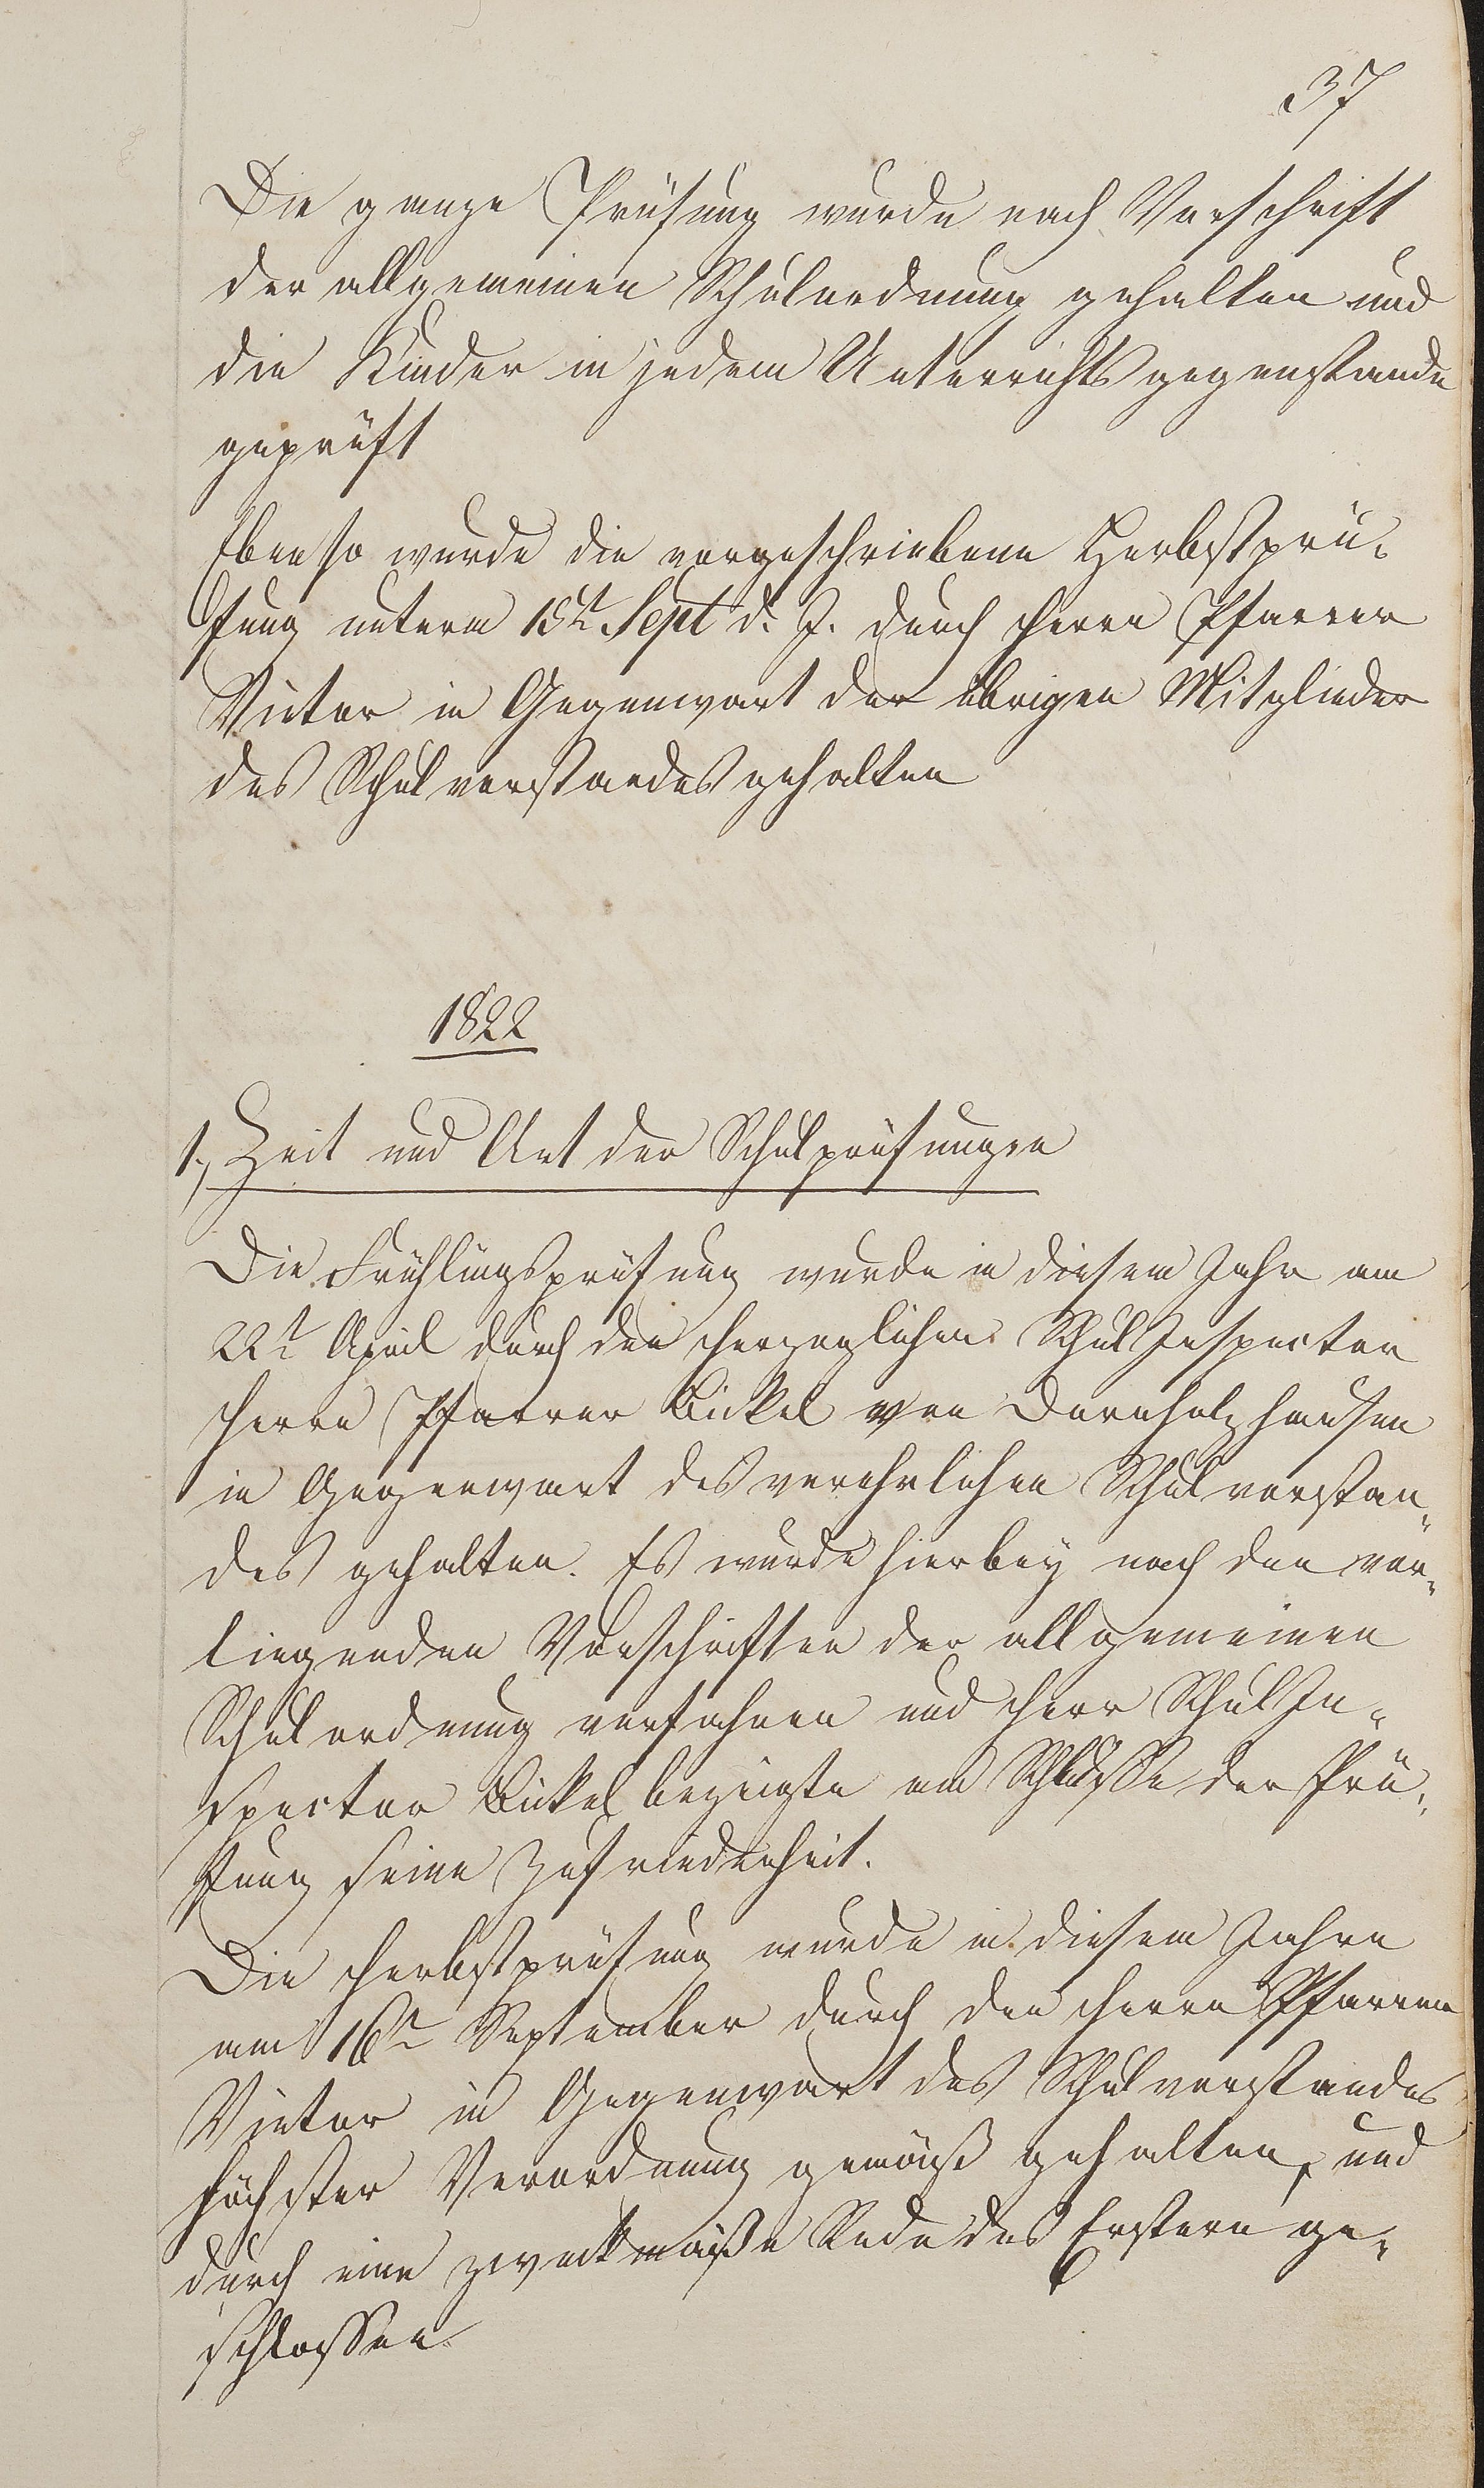 37
Die ganze Prüfung wurde nach Vorschrift
der allgemeinen Schulordnung gehalten und
die Kinder in jedem Unterrichtsgegenstande
geprüft
Ebenso wurde die vorgeschriebene Herbstprü-
fung unterm 18t Sept d. J. durch Herrn Pfarrer
Vietor in Gegenwart der übrigen Mitglieder
des Schulvorstandes gehalten
1822
1, Zeit und Art der Schulprüfungen
Die Frühlingsprüfung wurde in diesem Jahr am
22t April durch den Herzoglichen Schul Inspector
Herrn Pfarrer Bickel von Dornholzhausen
in Gegenwart des verehrlichen Schulvorstan-
des gehalten. Es wurde hierbey nach den vor-
liegenden Vorschriften der allgemeinen
Schulordnung verfahren und Herr Schul In-
spector Bickel bezeigte am Schlusse der Prü-
fung seine Zufriedenheit.
Die Herbstprüfung wurde in diesem Jahre
am 16t September durch den Herrn Pfarrer
Vietor in Gegenwart des Schulvorstandes
höchster Verordnung gemäß gehalten, und
durch eine zweckmäßige Rede des Erstern ge-
schlossen.